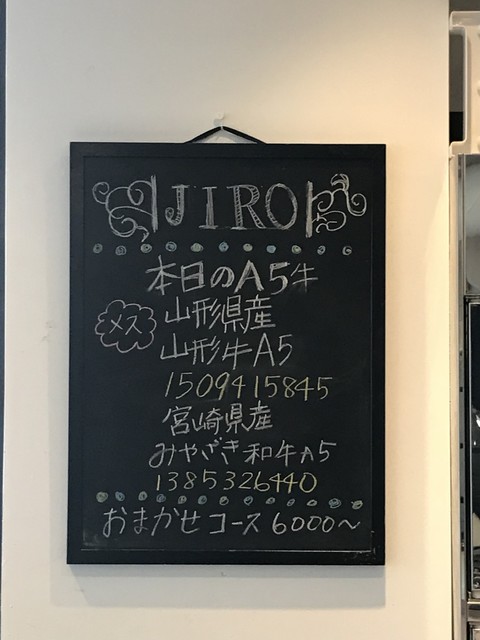 JIRO
本日のA5牛
メス
山形県産
山形牛A5
1509415845
宮崎県産
みやざき和牛A5
1385326440
おまかせコース6000〜